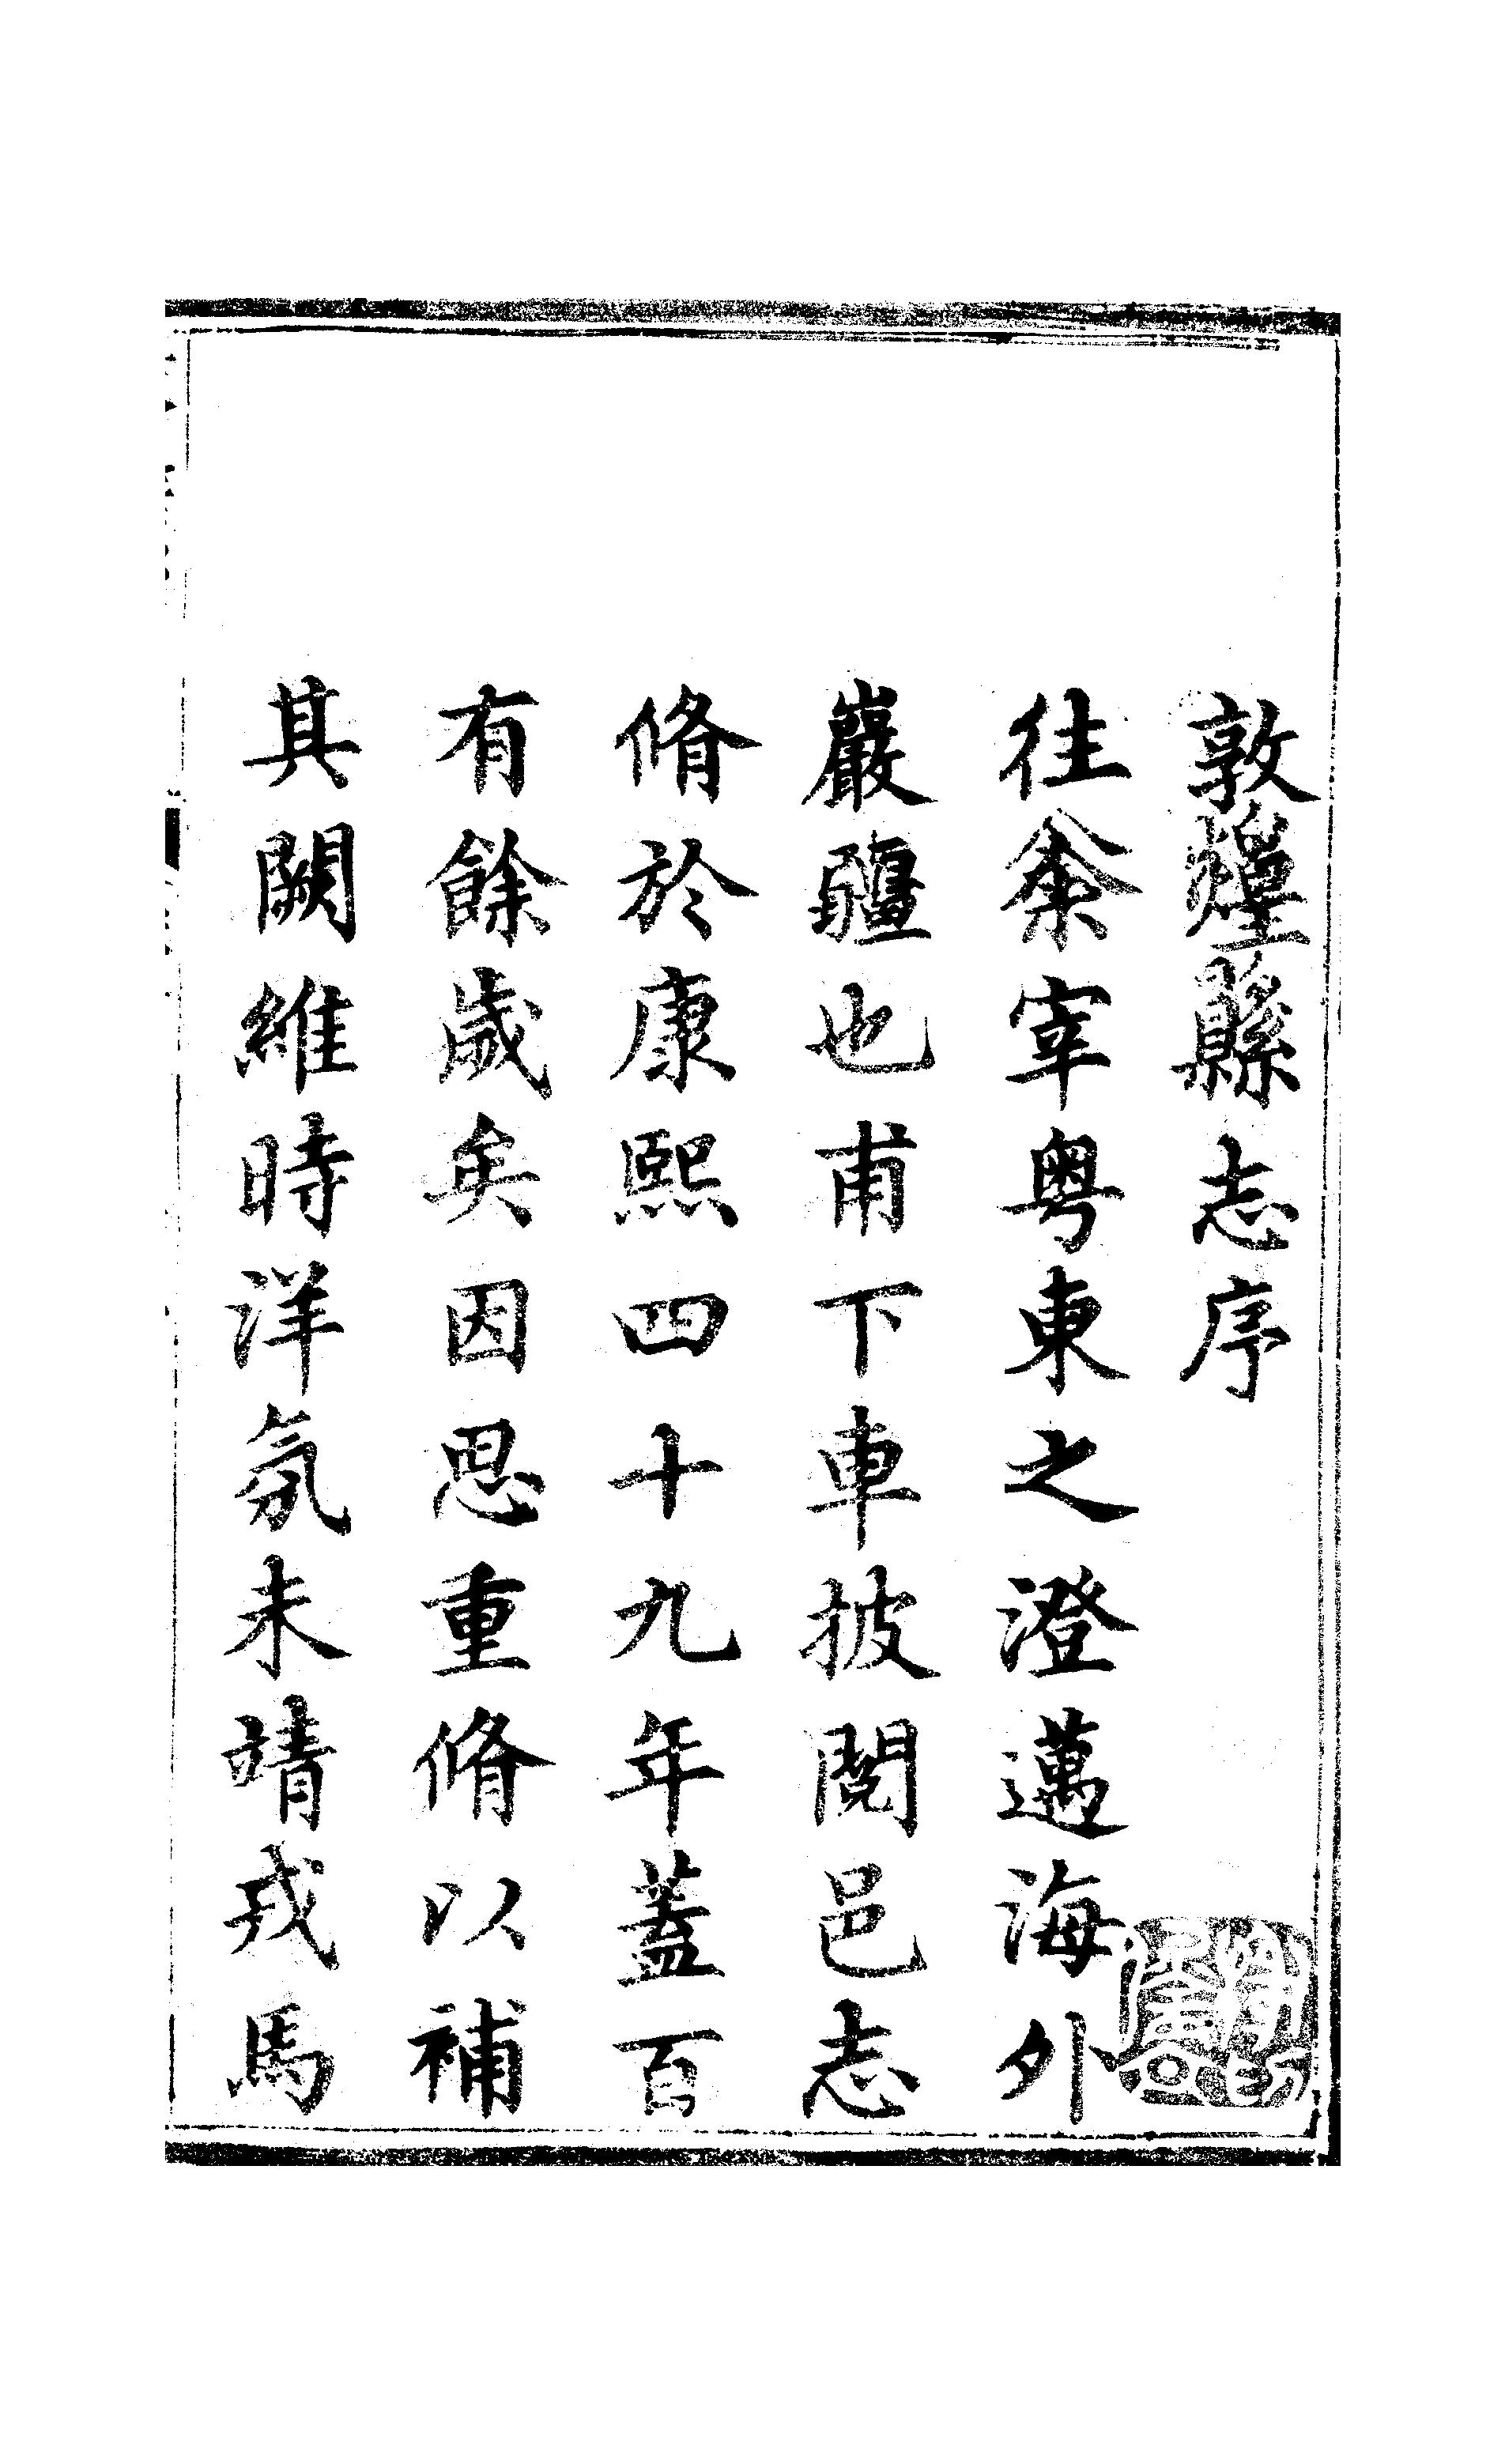 敦煌縣志序
徃余宰粤東之澄邁海外
巖疆也甫下車披閱邑志
脩於康熙四十九年蓋百
有餘歲矣因思重脩以補
其闕維時洋氛未靖戎馬